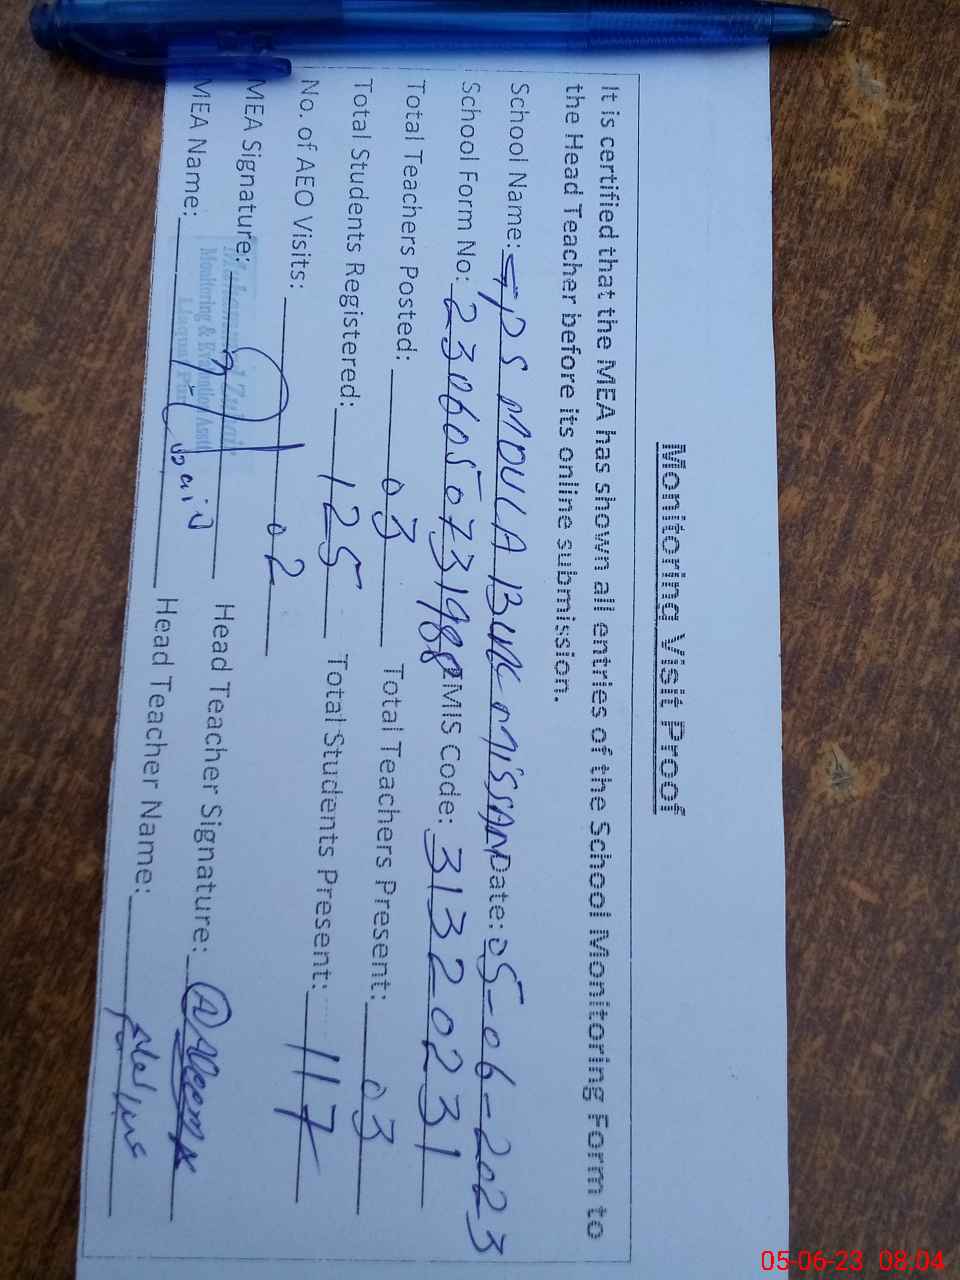 Monitoring Visit Proof
It is certified that the MEA has shown all entries of the School Monitoring Form to
the Head Teacher before its online submission.
School Name: PS MOULA BUX MISSAN Date: 05-06-2023
School Form No: 23060507 3198 EMIS Code: 31320231
Total Teachers Posted: 03 Total Teachers Present: 03
Total Students Registered: 125 Total Students Present: 117
No. of AEO Visits: 02
MEA Signature: Head Teacher Signature:
MEA Name: Head Teacher Name:
Monitoring & Evaluation Assistt
05-06-23 08:04